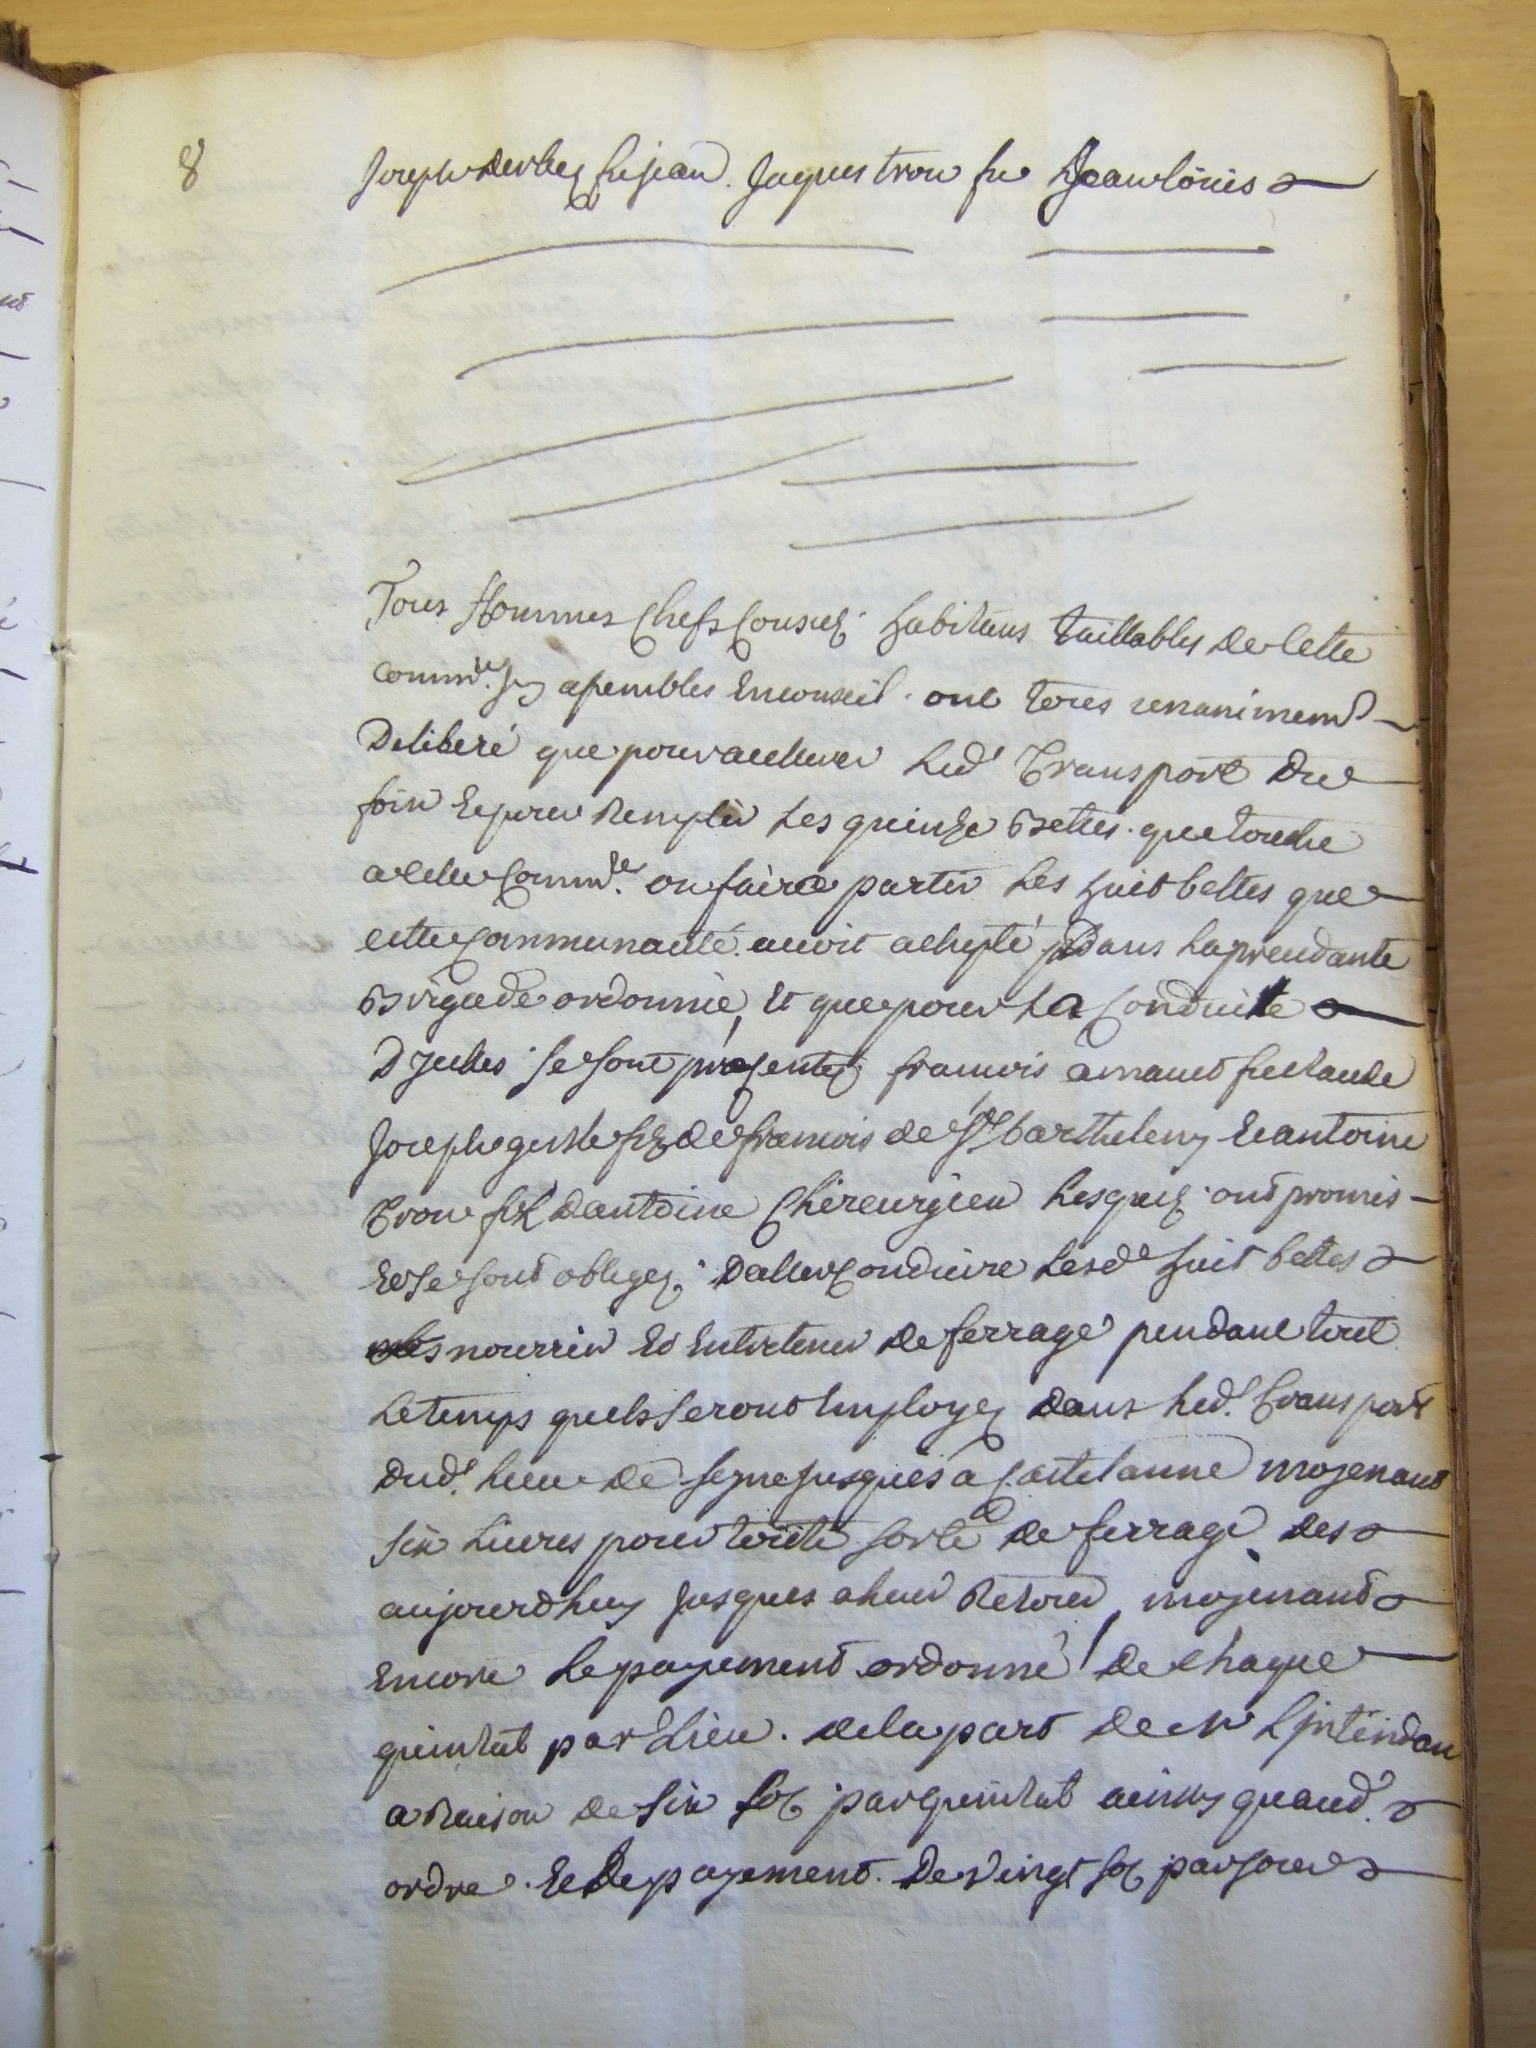 8
Joseph derbez fu jean. Jaques trou fu Jean loüis
Tous Hommes chefs conseil. habitans taillables de cette
commté. Icy assemblés en conseil. ont tous unanimemt
Deliberé que pour achever led' Transport du
foin et pour Remplir les quinze Bettes. que touche
a cette commté. on faira partir les huit bettes que
cette communauté. avoit achepté dans la prendante
Brigade ordonnée, et que pour la conduitte
D'jcelles se sont présentez. francois arnaud fu claude
Joseph gerle fils de francois de St barthelemy et antoine
Trou fils d'antoine chireurgien lesquels ont promis
et se sont obligez. D'aller conduire lesd' huit bettes
les nourrir et entretenir de ferrage pendant tout
le temps quels seront Employez dans led'. Transport
dud'. lieu de seyne jusques a Castelanne moyenant
six livres pour toutte sorte de ferrage des
aujourdhuy jusques a leur Retour, moyenant
encore le payement ordonné de chaque
quintal par lieu. de la part de mr L'jntendan
a Raison de six sols par quintal ainsy quaud'.
ordre. et de payement. De vingt sols par jour